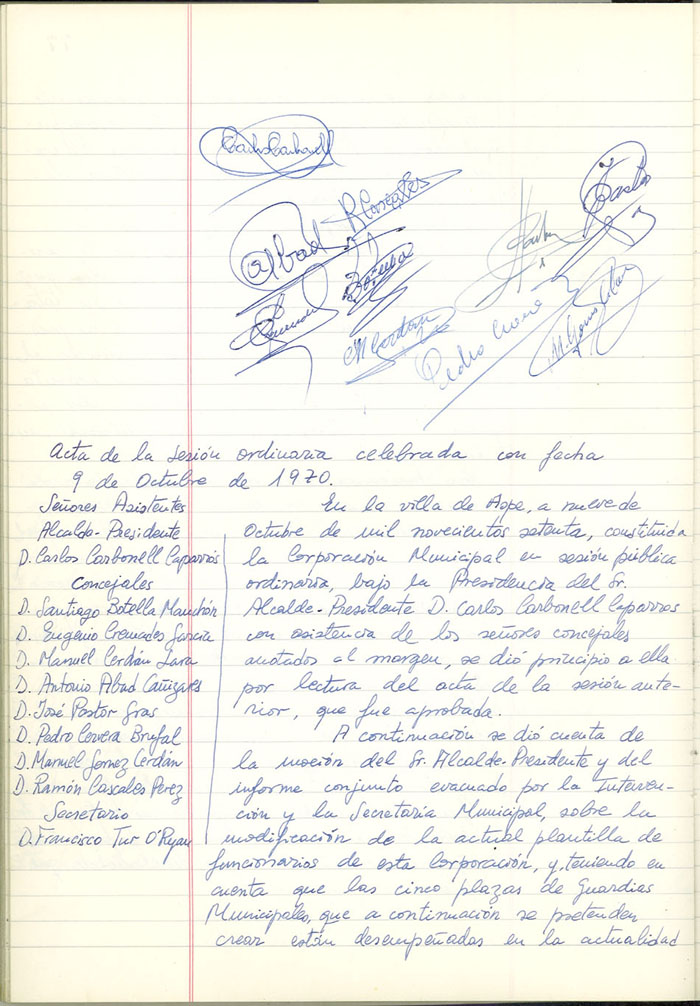 Carlos Carbonell
Abad
R Cascales
Pastor
Botella
M Cerdán
Pedro Cervera
M. Gomez Cerdan
Acta de la sesión ordinaria celebrada con fecha
9 de Octubre de 1970.
Señores Asistentes
Alcalde-Presidente
D. Carlos Carbonell Caparrós
Concejales
D. Santiago Botella Manchón
D. Eugenio Cremades García
D. Manuel Cerdán Jara
D. Antonio Abad Cañizares
D. José Pastor Gras
D. Pedro Cervera Brufal
D. Manuel Gomez Cerdán
D. Ramón Cascales Perez
Secretario
D. Francisco Tur O'Ryan
En la villa de Aspe, a nueve de
Octubre de mil novecientos setenta, constituida
la Corporación Municipal en sesión pública
ordinaria, bajo la Presidencia del Sr.
Alcalde-Presidente D. Carlos Carbonell Caparros
con asistencia de los señores concejales
anotados al margen, se dió principio a ella
por lectura del acta de la sesión ante-
rior, que fue aprobada.
A continuación se dió cuenta de
la moción del Sr. Alcalde-Presidente y del
informe conjunto evacuado por la Interven-
ción y la Secretaría Municipal, sobre la
modificación de la actual plantilla de
funcionarios de esta Corporación, y, teniendo en
cuenta que las cinco plazas de Guardias
Municipales, que a continuación se pretenden
crear están desempeñadas en la actualidad